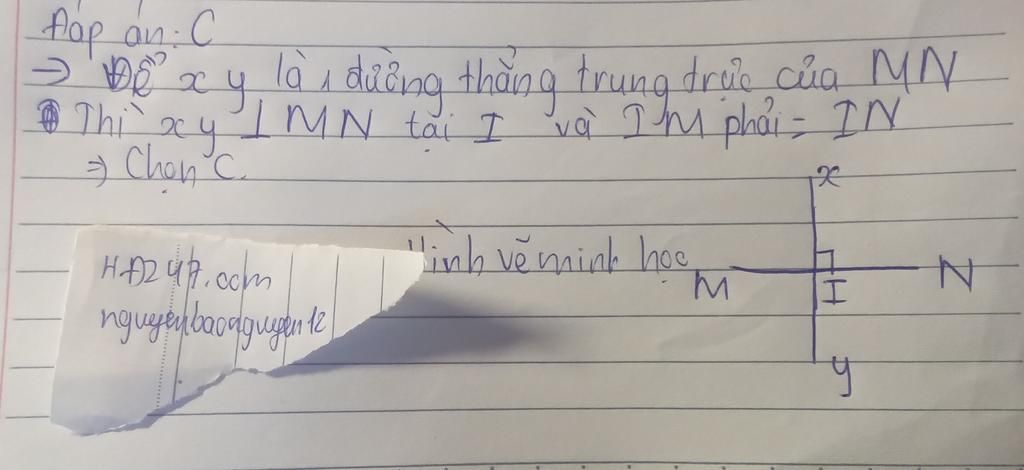 Đáp án: C
→ Để xy là 1 đường thẳng trung trực của MN
Thì xy ⊥ MN tại I và IM phải = IN
⇒ Chọn C.
Hình vẽ minh học
x
M
I
N
y
HĐ247.com
nguyenbaonguyen12